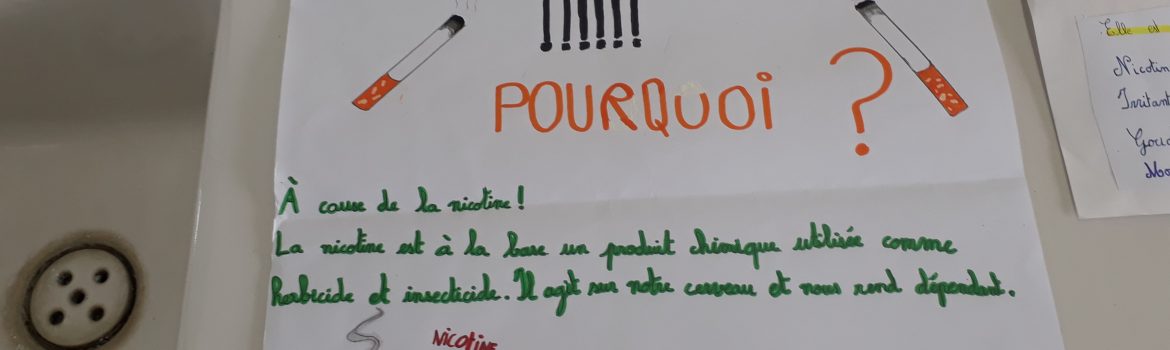 !!!!!!
POURQUOI ?
À cause de la nicotine !
La nicotine est à la base un produit chimique utilisée comme
herbicide et insecticide. Il agit sur notre cerveau et nous rend dépendant.
NICOTINE
Elle
Nicotin
Irritant